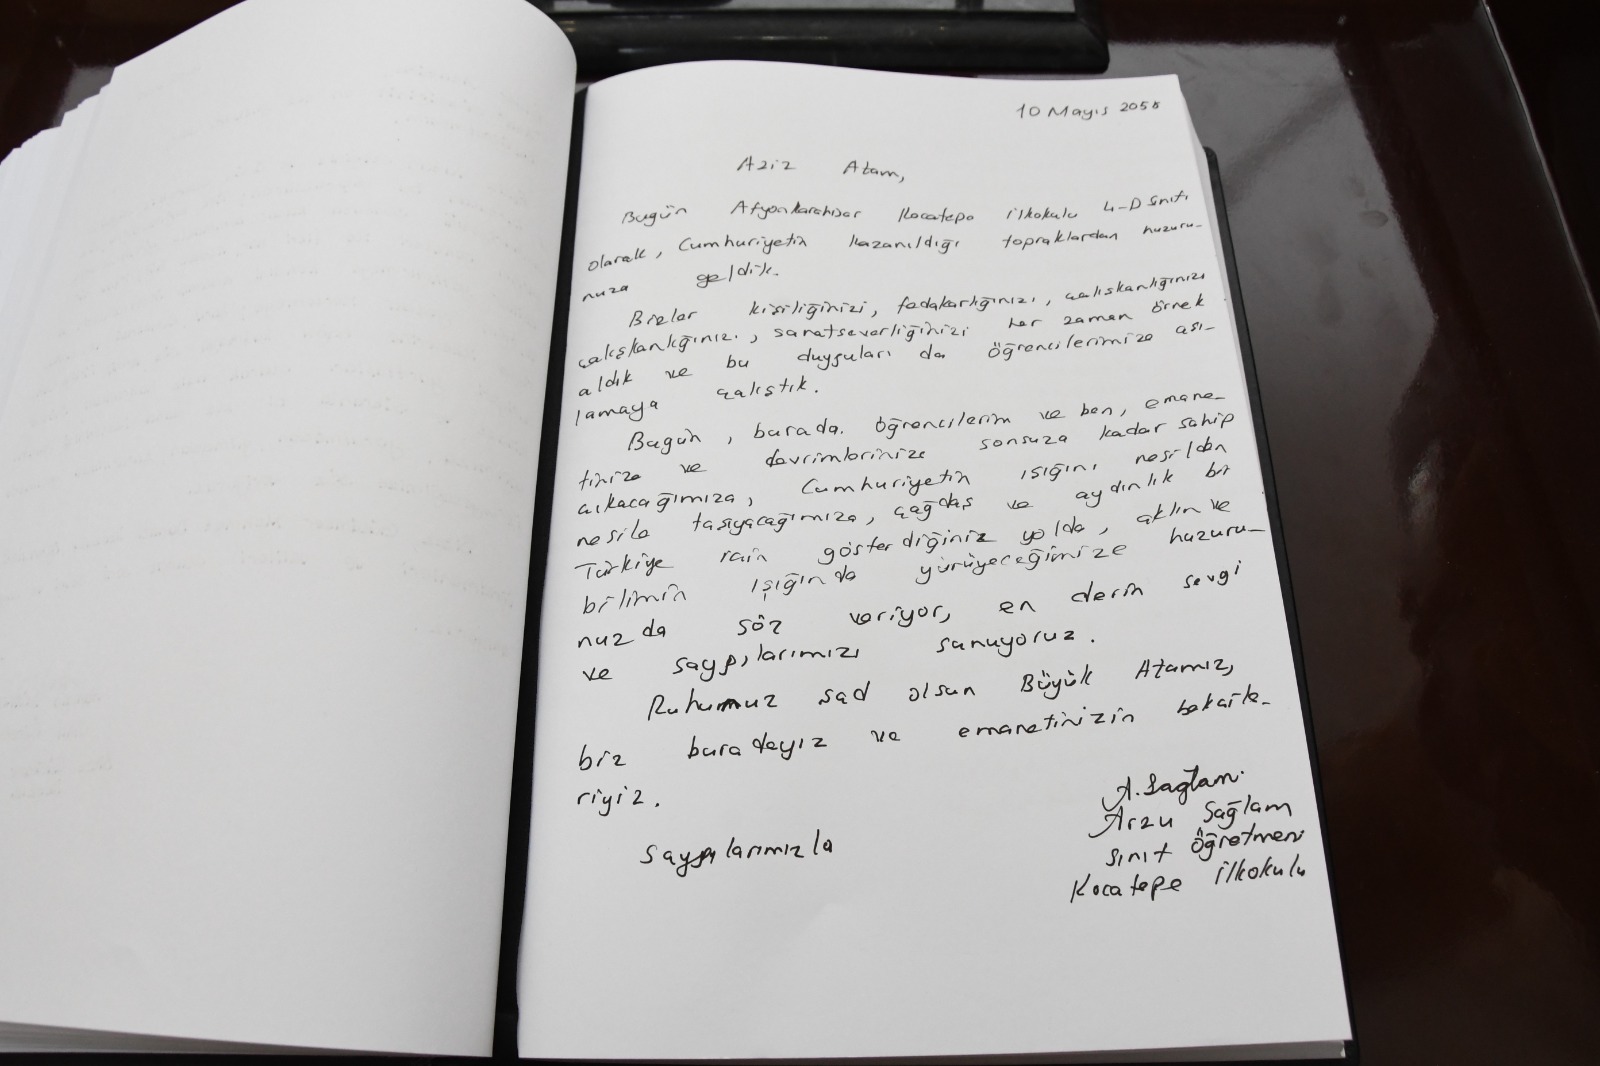 10 Mayıs 2058
Aziz Atam,
Bugün Afyonkarahisar Kocatepe İlkokulu 4-D Sınıfı
olarak, Cumhuriyetin kazanıldığı topraklardan huzuru-
nuza geldik.
Bizler kişiliğinizi, fedakarlığınızı, çalışkanlığınızı
çalışkanlığınızı, sanatseverliğinizi her zaman örnek
aldık ve bu duyguları da öğrencilerimize aşı-
lamaya çalıştık.
Bugün, burada öğrencilerim ve ben, emane-
tinize ve devrimlerinize sonsuza kadar sahip
çıkacağımıza, Cumhuriyetin ışığını nesilden
nesile taşıyacağımıza, çağdaş ve aydınlık bir
Türkiye için gösterdiğiniz yolda, aklın ve
bilimin ışığında yürüyeceğimize huzuru-
nuzda söz veriyor, en derin sevgi
ve saygılarımızı sunuyoruz.
Ruhumuz şad olsun Büyük Atamız,
biz buradayız ve emanetinizin bekçile-
riyiz.
Saygılarımızla
A. Sağlam
Arzu Sağlam
Sınıf Öğretmeni
Kocatepe İlkokulu